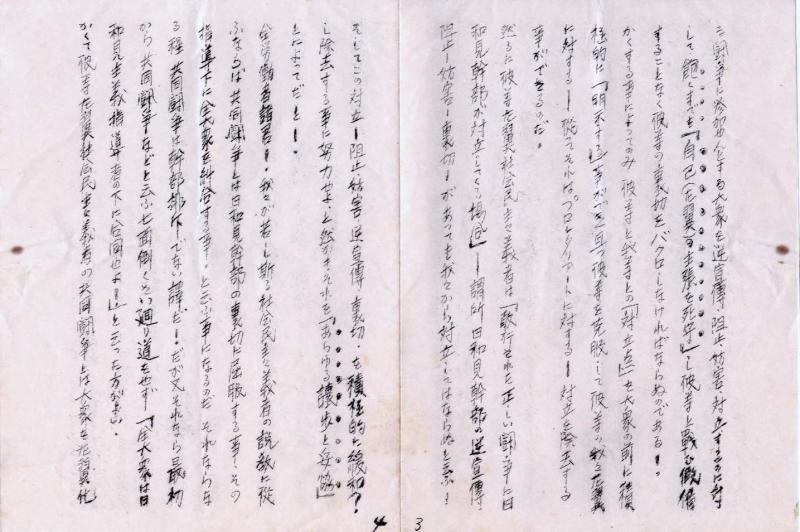 る闘争に参加せんとする大衆を逆宣傳、阻止妨害、対立するのに対
して飽くまでも「自己(左翼)の主張を死守」し彼等と戦ひ假借
することなく彼等の裏切をバクロしなければならぬのである!。
かくする事によってのみ彼等と我等との「対立点」を大衆の前に積
極的に「明示する」事ができ且つ彼等を克服して彼等の我々左翼
に対する――従ってそれはプロレタリアートに対する――対立を除去する
事ができるのだ。
然るに彼等左翼社会民主々義者は「敢行された正しい闘争に日
和見幹部が対立してくる場合」――謂所日和見幹部の逆宣傳、
阻止――妨害――裏切――があっても我々から対立してはならぬと云ふ!
そしてこの対立――阻止妨害、逆宣傳、裏切、を積極的に緩和?
し除去する事に努力せよ、と然かもそれを「あらゆる讓歩と妥協」
とによってだと――。
全労働者諸君!。我々が若し斯る社会民主々義者の説教に従
ふならば共同闘争とは日和見幹部の裏切に屈服する事、その
指導下に全民衆を糾合する事。と云ふ事になるのだ それならな
る程 共同闘争は幹部排斥でない譯だ!。だが又それなら最初
から共同闘争などと云ふ七面倒くさい廻り道をせず――「全大衆は日
和見主義指導者の下に合同せよ!」と云った方がよい。
かくて彼等左翼社会民主々義者の共同闘争とは大衆を左翼化
3
4